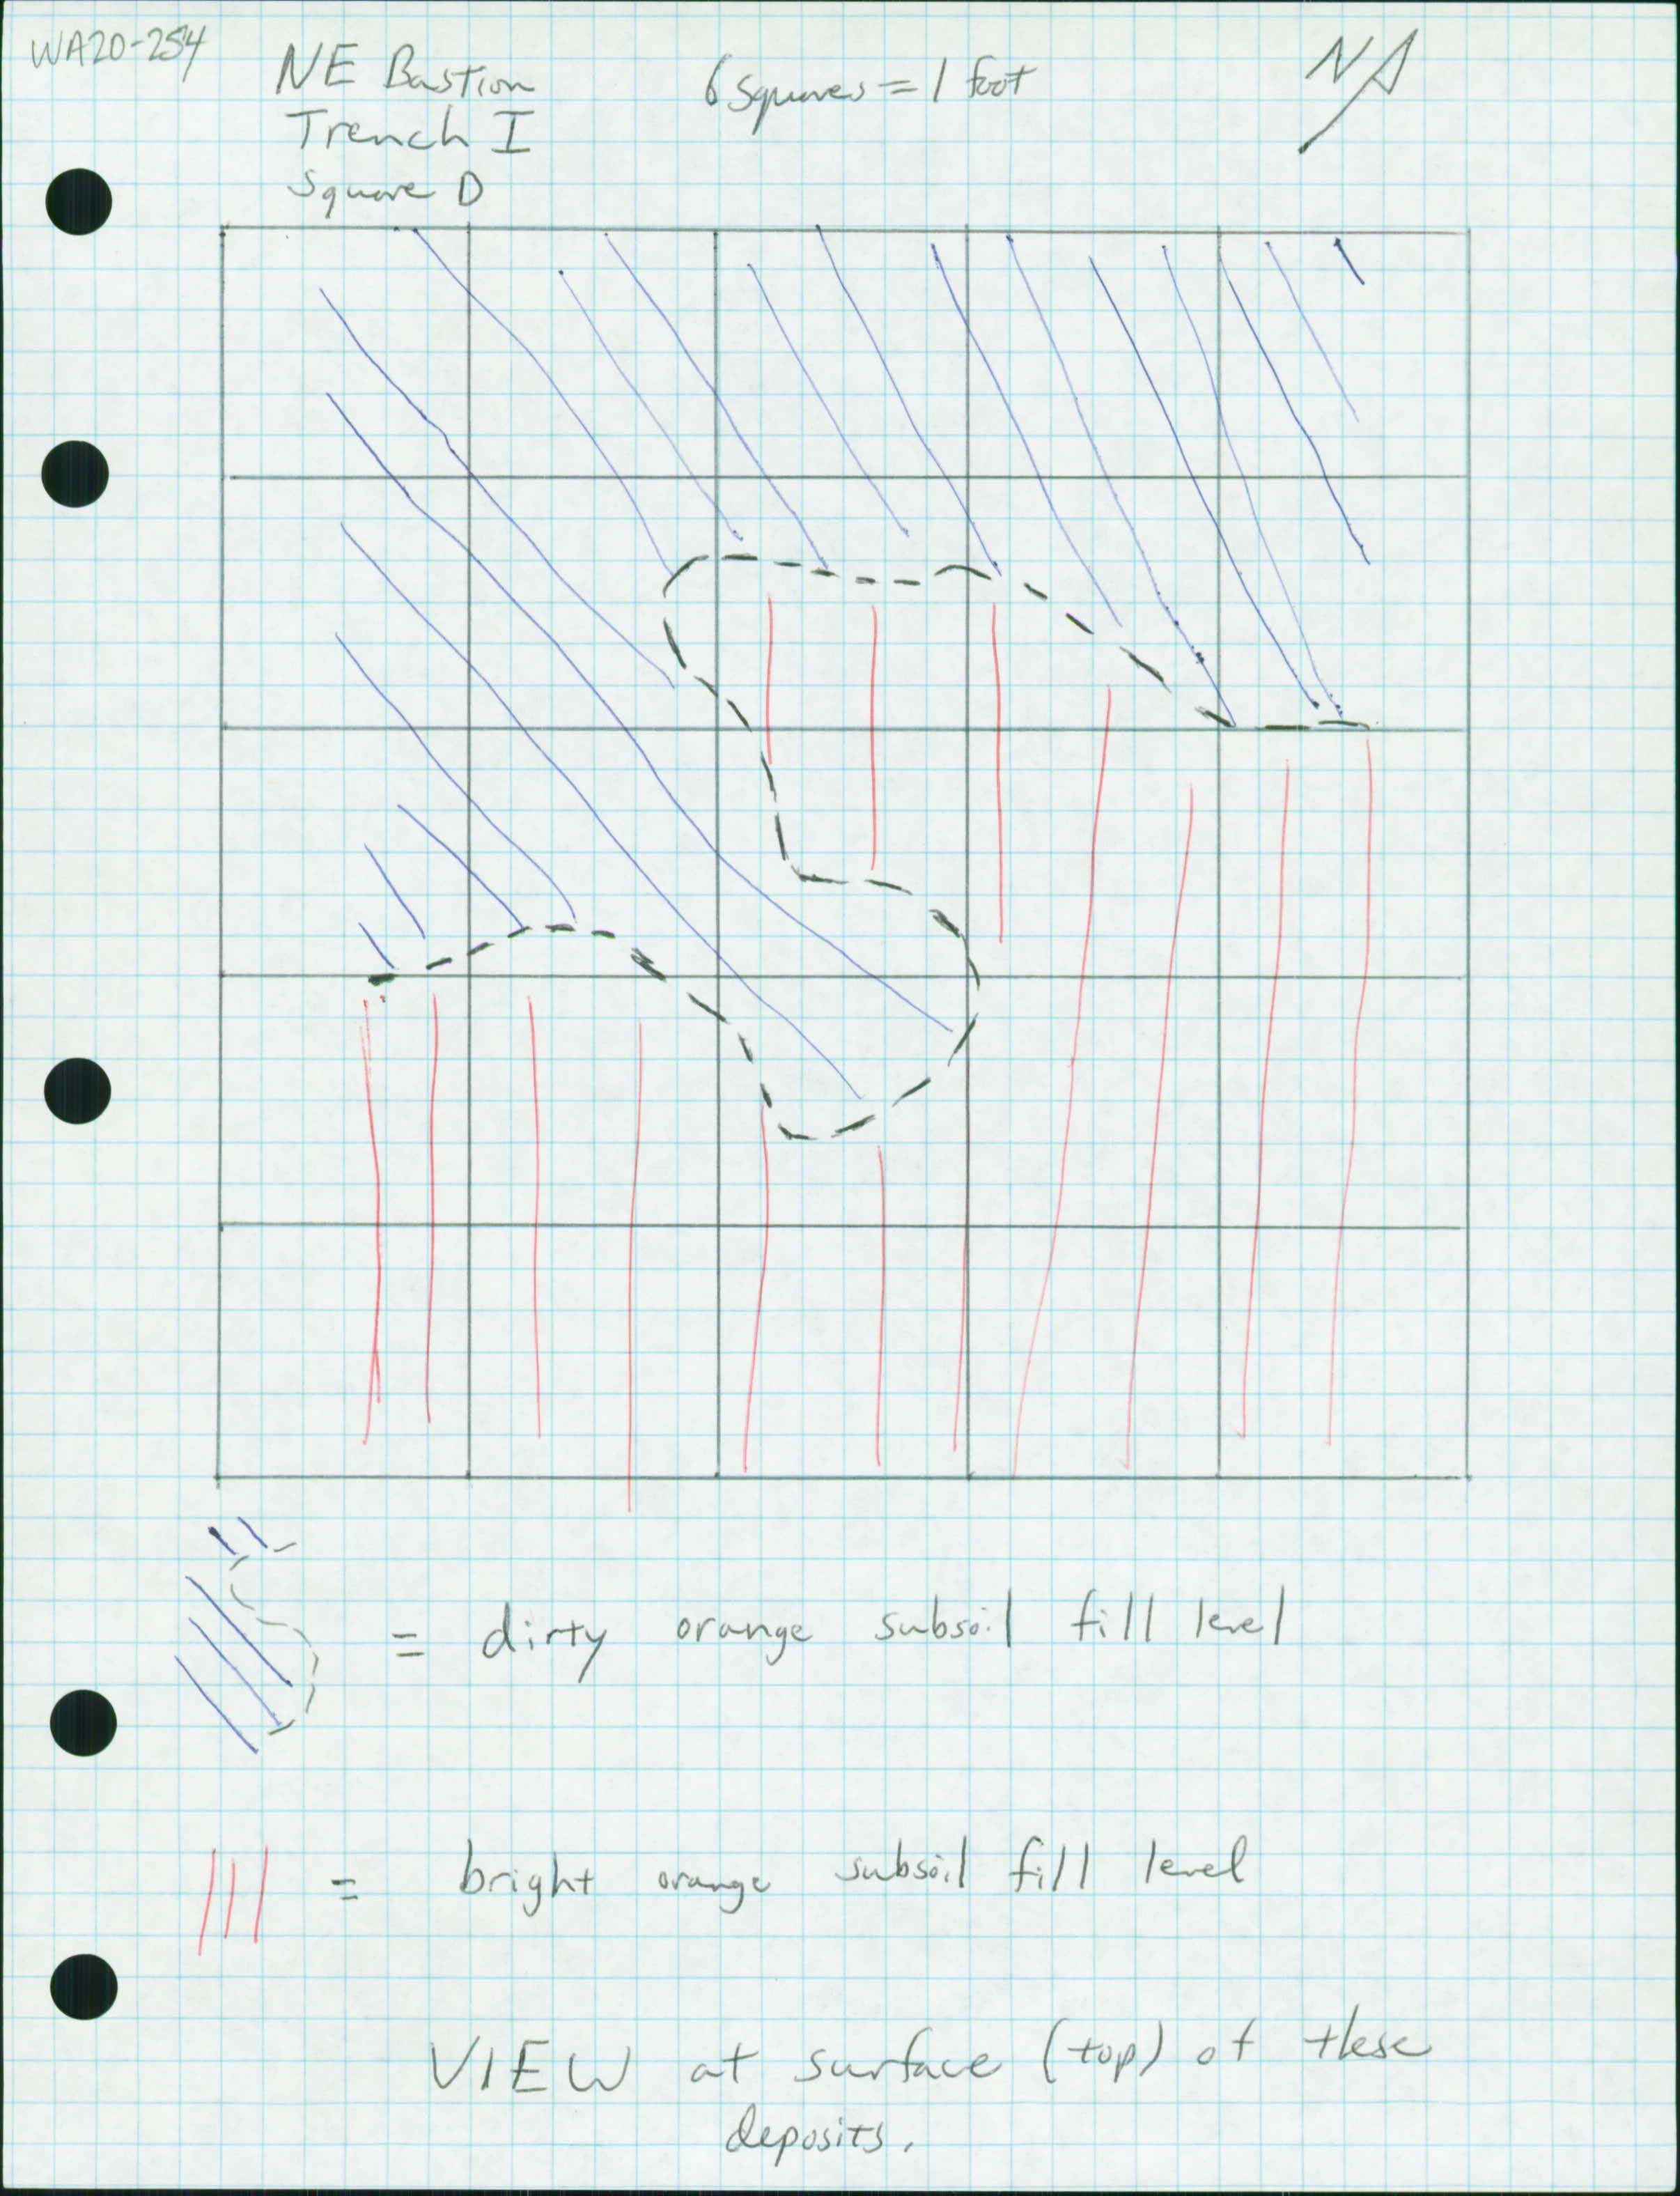 WA20-254
NE Bastion
Trench I
Square D
6 squares = 1 foot
N
= dirty orange subsoil fill level
= bright orange subsoil fill level
VIEW at surface (top) of these
deposits.